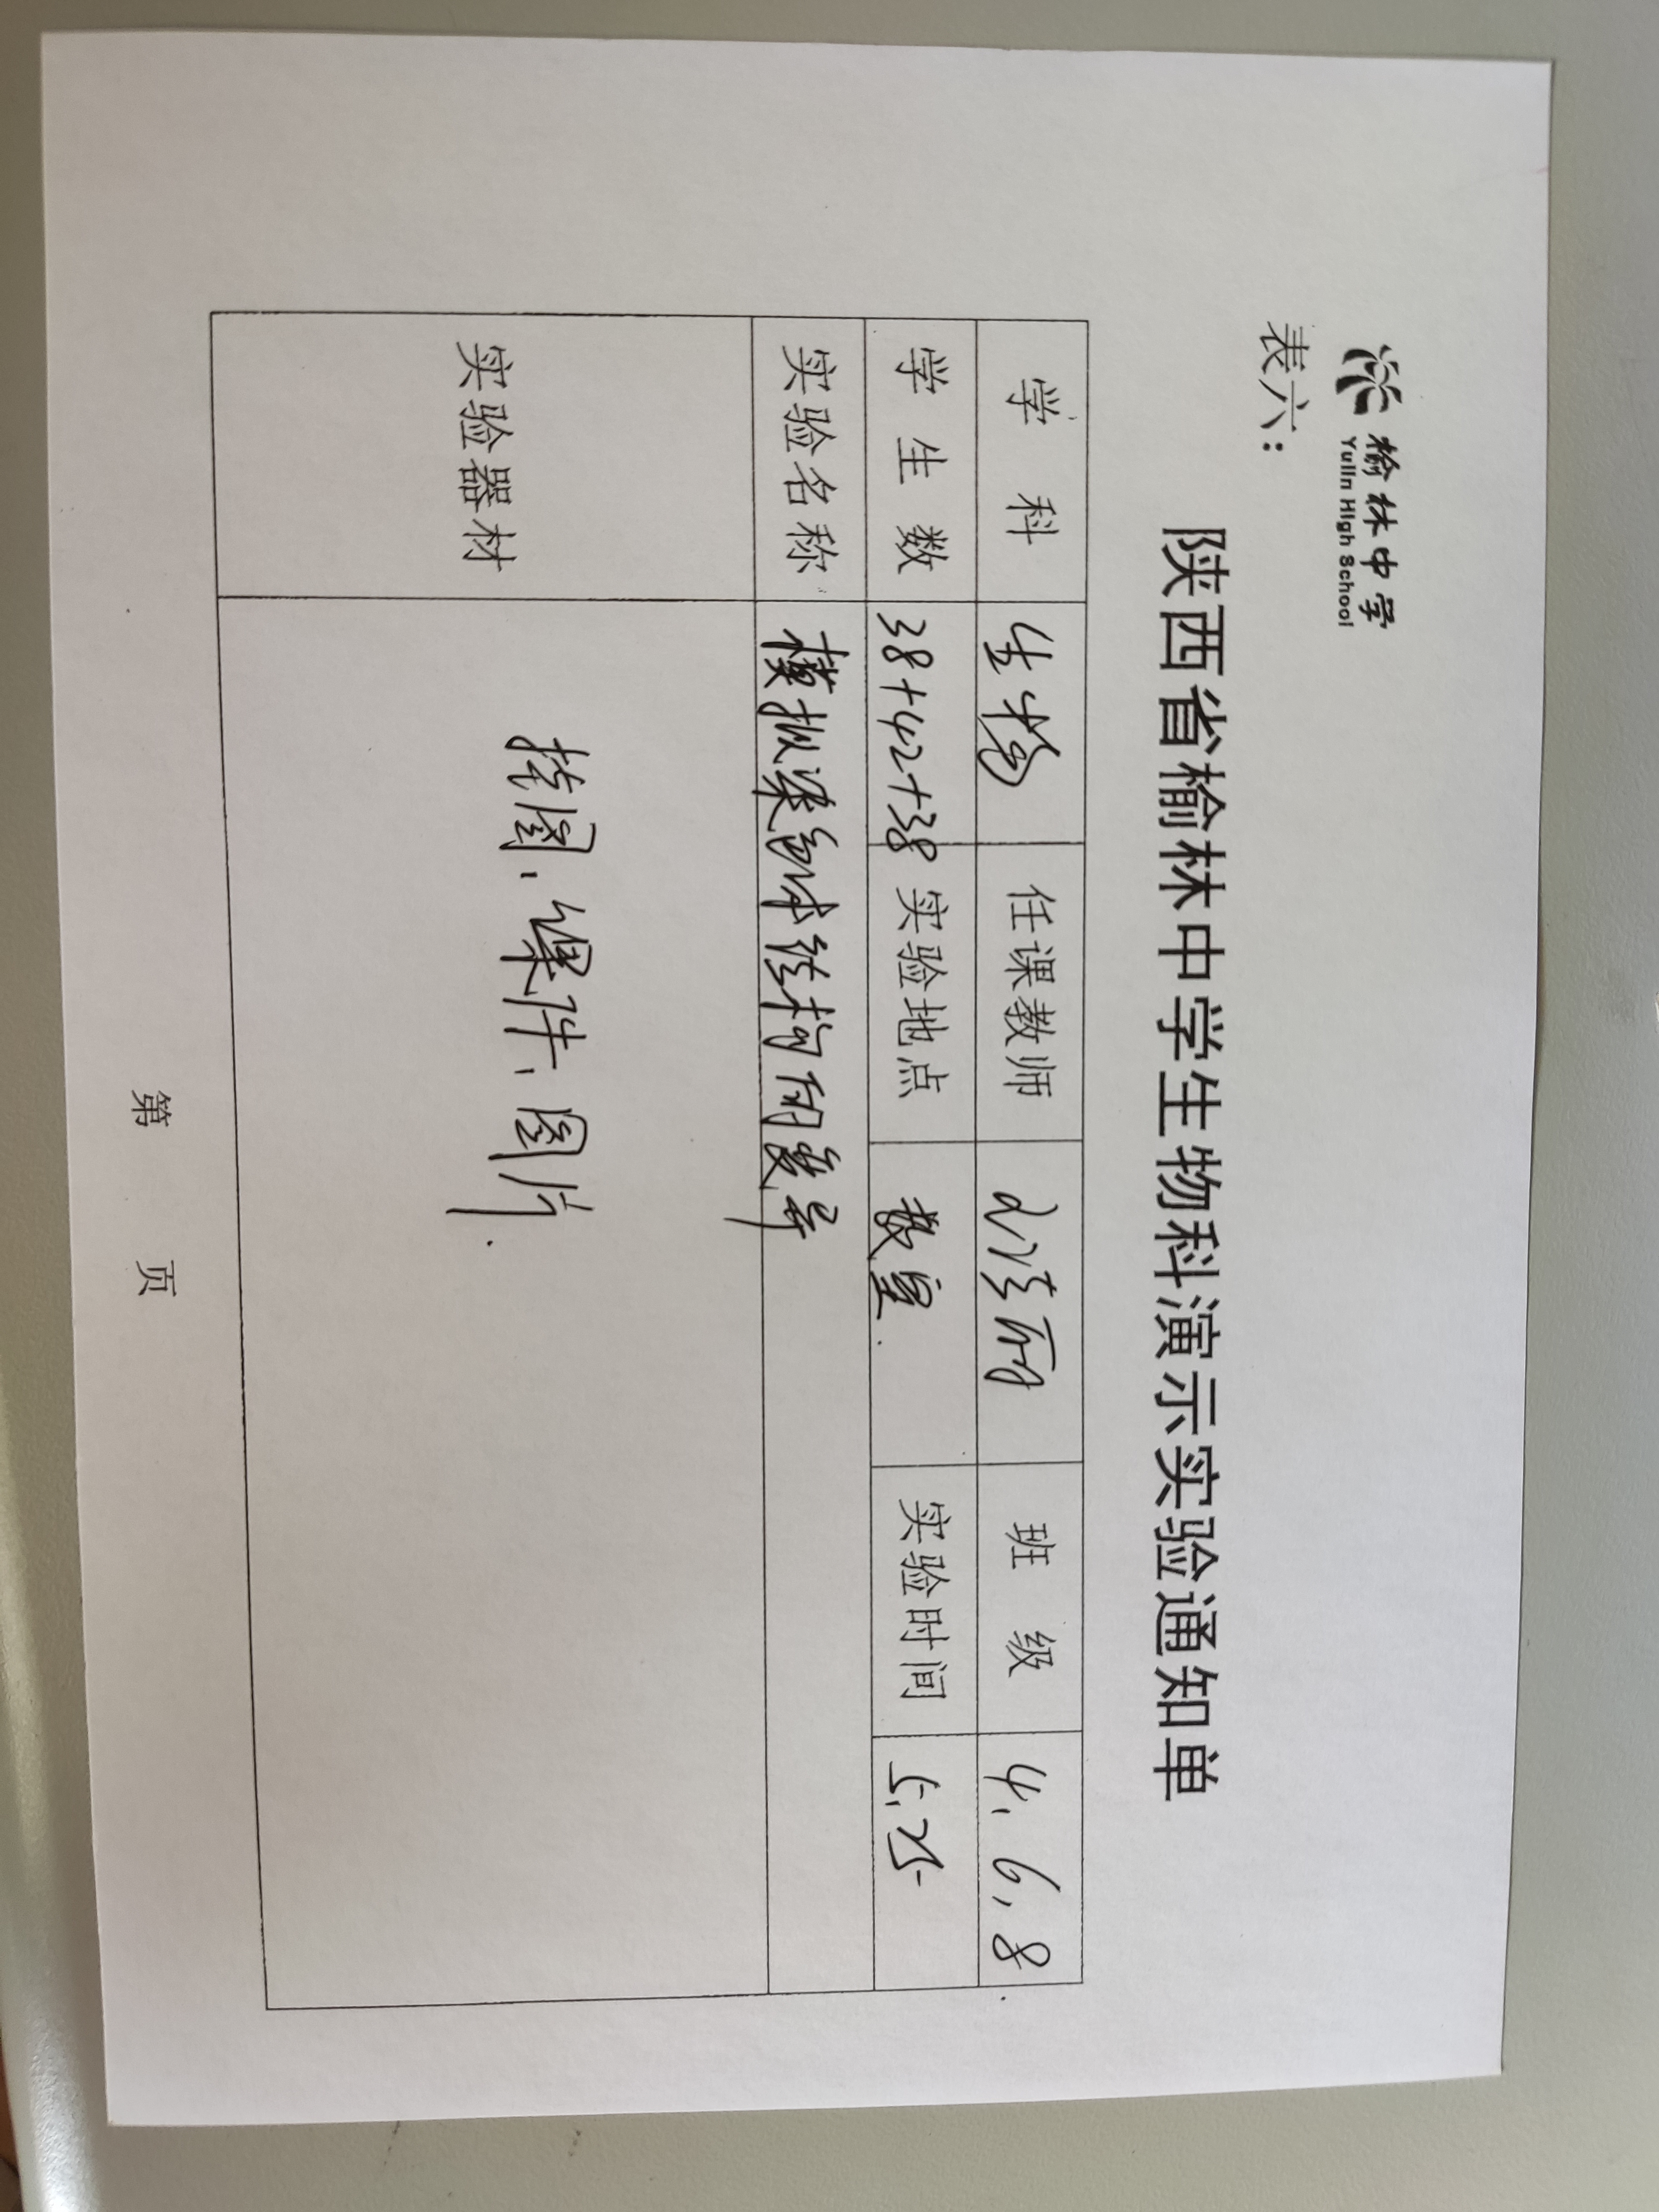 榆林中学
Yulin High School
表六：
陕西省榆林中学生物科演示实验通知单
学 科 生物 任课教师 班 级 4、6、8
学 生 数 38+42+38 实验地点 教室. 实验时间 5、25
实验名称 模拟染色体结构的变异
实验器材 挂图、课件、图片.
第 页